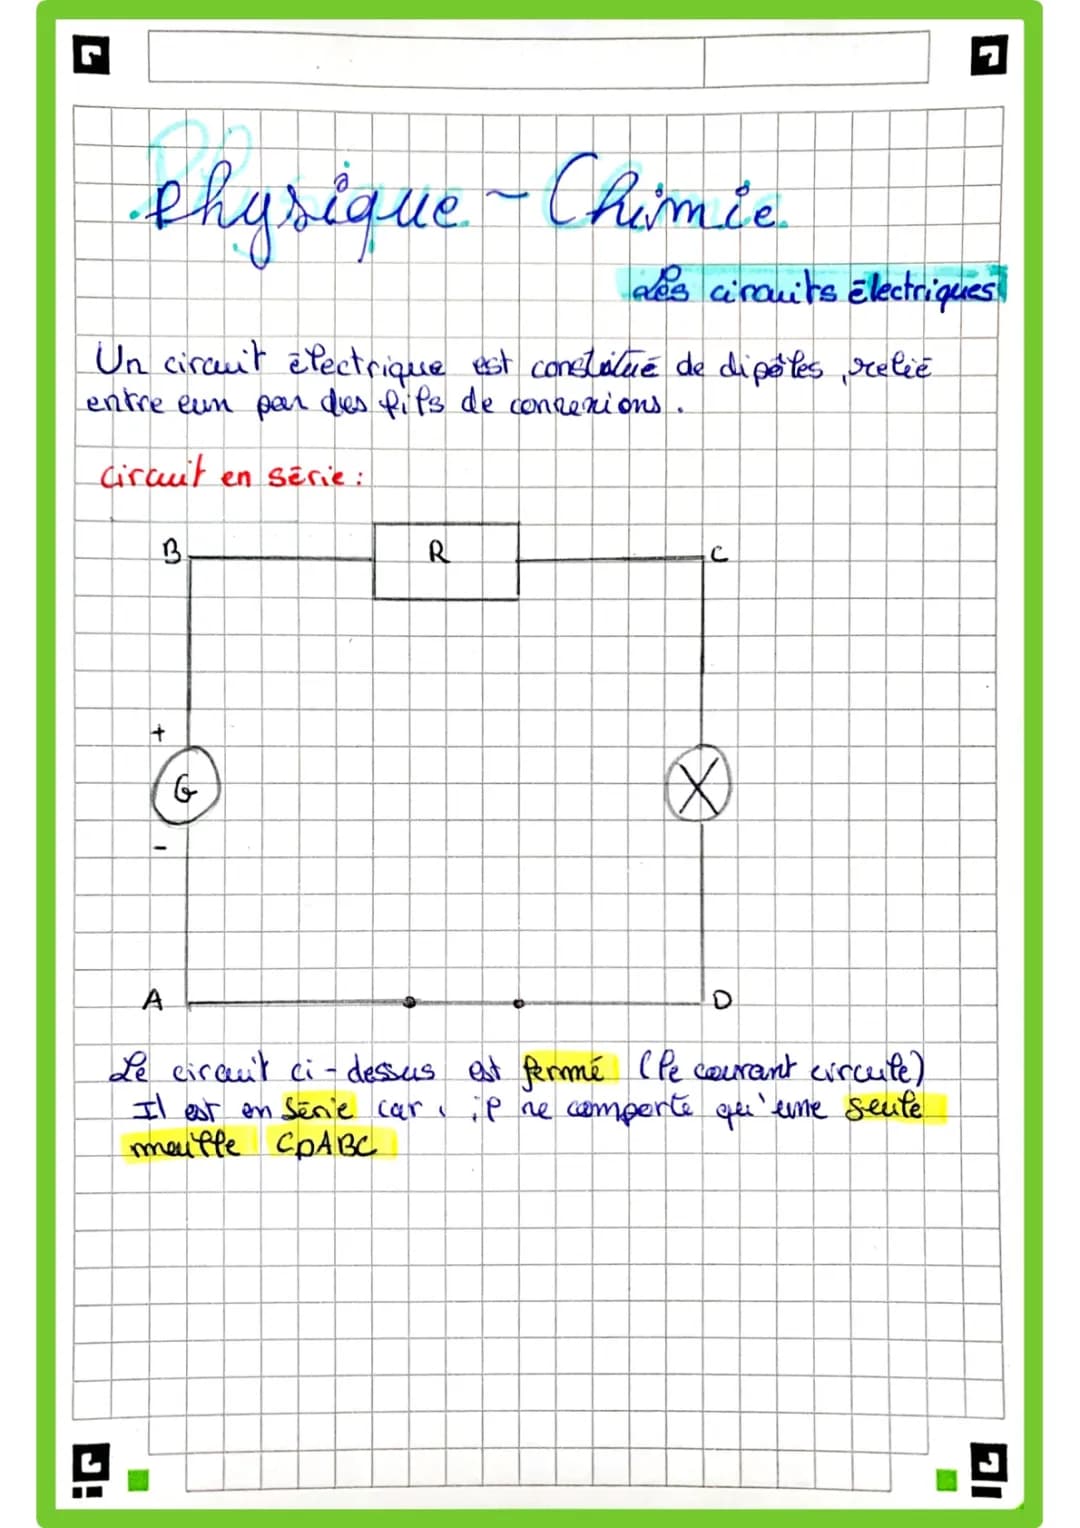 Physique - Chimie.
Les circuits électriques
Un circuit électrique est constitué de dipôles, relié
entre eun par des fils de connexions.
Circuit en série :
B R C
+
G
-
A D
Le circuit ci-dessus est fermé (le courant circule)
Il est en Série car, il ne comporte qu'une seule
maille CDABC